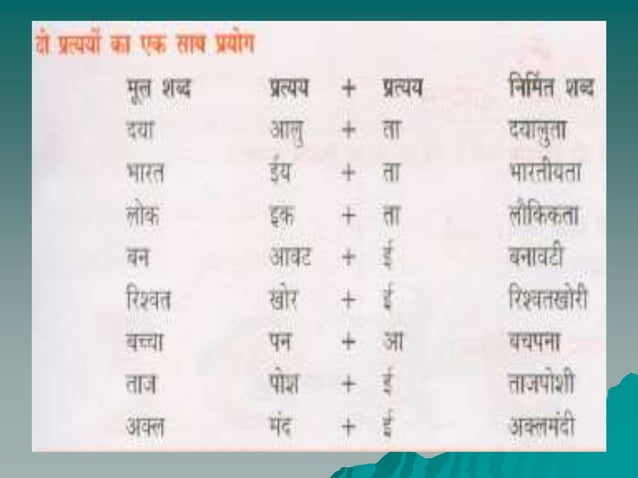 दो प्रत्ययों का एक साथ प्रयोग
मूल शब्द प्रत्यय + प्रत्यय निर्मित शब्द
दया आलु + ता दयालुता
भारत ईय + ता भारतीयता
लोक इक + ता लौकिकता
बन आवट + ई बनावटी
रिश्वत खोर + ई रिश्वतखोरी
बच्चा पन + आ बचपना
ताज पोश + ई ताजपोशी
अक्ल मंद + ई अक्लमंदी